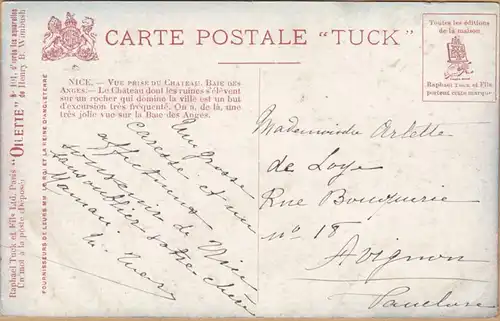 CARTE POSTALE "TUCK"
Toutes les éditions
de la maison
Raphael Tuck et Fils
portent cette marque
NICE. — VUE PRISE DU CHATEAU. BAIE DES
ANGES. — Le Château dont les ruines s'élèvent
sur un rocher qui domine la ville est un but
d'excursion très fréquenté. On a, de là, une
très jolie vue sur la Baie des Anges.
Raphael Tuck et Fils Ltd, Paris "OILETTE" d'après les aquarelles
Un mot à la poste (déposé) de Henry B. Wimbush
FOURNISSEURS DE LEURS MM. LE ROI ET LA REINE D'ANGLETERRE
Une grosse
caresse et un
affectueux
souvenir de Nice
sans oublier votre chère
Maman.
Mademoiselle Arlette
de Loye
Rue Bouquerie
n° 18
Avignon
Vaucluse